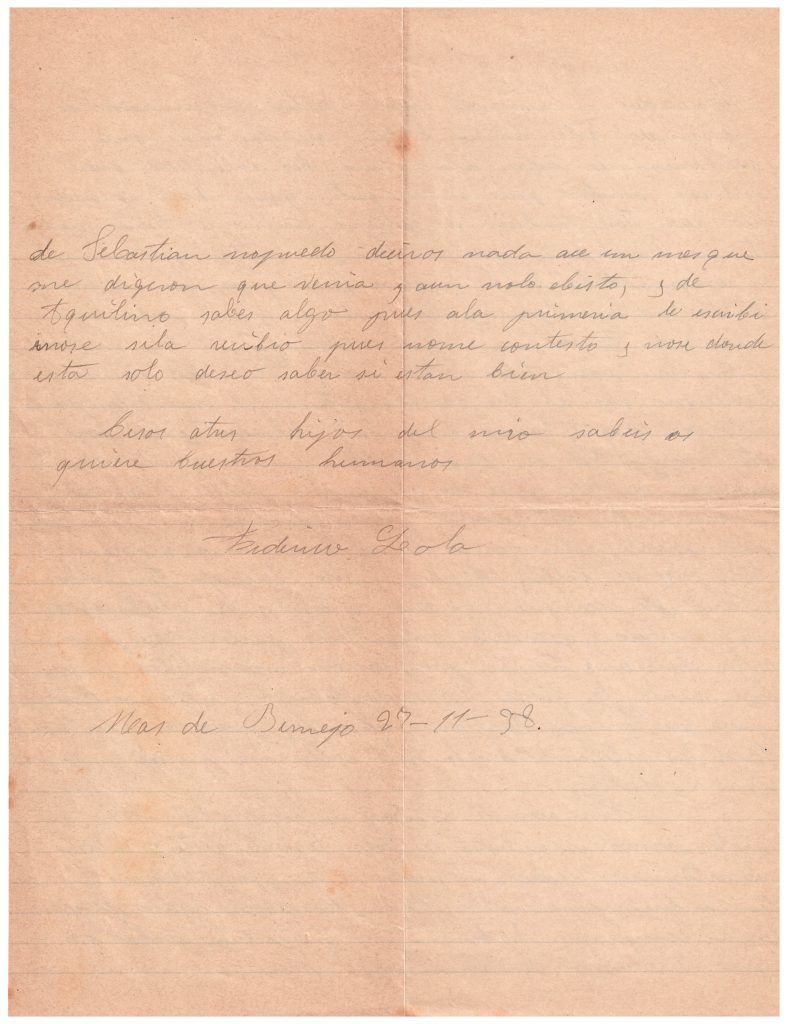 de Sebastian nopuedo deciros nada ace un mes que
me digeron que venia y aun nolo ebisto, y de
Aquilino sabes algo pues ala primeria le escribi
inose sila recibio pues nome contesto y nose donde
esta solo deseo saber si estan bien
besos atus hijos del mio sabeis os
quiere buestros humanos
Federico Lola
Mas de Bermejo 27-11-38.